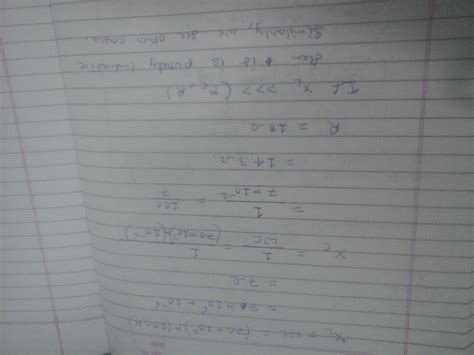 X_L = ωL = (70×10³)×(100μ)
= 70×10⁵×10⁻⁶
= 7Ω
X_C = 1/ωC = 1/(70×10³)(10⁻⁶)
= 1/7×10⁻² = 100/7
= 14.3 Ω
R = 10 Ω
If X_L >>> (X_C, R)
then it is purely inductive
Similarly, we see other cases.